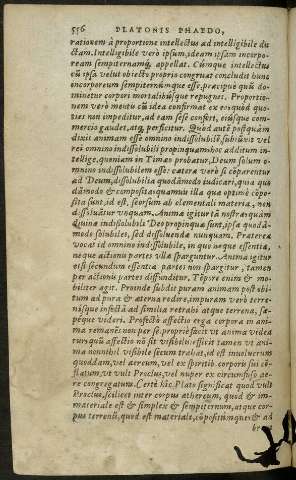 556 PLATONIS PHAEDO,
rationem à proportione intellectus ad intelligibile du
ctam. Intelligibile verò ipsum, ideam ipsam incorpo-
ream sempiternamq; appellat. Cúmque intellectus
cū ipsa velut obiecto proprio congruat concludit hunc
incorporeum sempiternúmque esse, præcipuè quū do-
minetur corpori mortalibúsque repugnet. Proportio-
nem verò mentis cū idea confirmat ex eo quòd quo-
ties non impeditur, ad eam sese confert, eiúsque com-
mercio gaudet, atq; perficitur. Quòd autē postquàm
dixit animam esse omnino indissolubilē subiūxit vel
rei omnino indissolubili propinquam hoc additum in-
tellige, quoniam in Timæo probatur, Deum solum o-
mnino indissolubilem esse: cætera verò si cōparentur
ad Deum, dissolubilia quodāmodo iudicari, quia quo
dāmodo & composita quamuis illa quia optimè cōpo-
sita sunt, id est, seorsum ab elementali materia, non
dissoluātur vnquam. Anima igitur tā nostra quàm
quia indissolubili Deo propinqua sunt, ipsæ quodā-
modo solubiles, sed dissoluendæ nunquam. Præterea
vocat id omnino indissolubile, in quo neque essentia,
neque actiones partes vllæ sparguntur. Anima igitur
etsi secundum essentiā partes non spargitur, tamen
per actiones partes diffunditur. Tēpore enim & mo-
biliter agit. Proinde subdit puram animam post obi-
tum ad pura & æterna redire, impuram verò terre-
nísque infectā ad similia retrahi atque terrena, sæ-
péque videri. Profectò affectio erga corpora in ani-
ma remanēs non per se, propriè facit vt anima videa
tur: quū affectio nō sit visibilis: efficit tamen vt ani-
ma nonnihil visibile secum trahat, id est inuolucrum
quoddam, vel aereum, vel ex spiritib corporis sui cō-
flatum, vt vult Proclus, vel nuper ex circunfuso ae-
re congregatum. Certè hîc Plato significat quod vult
Proclus, scilicet inter corpus æthereum, quod & im-
materiale est & simplex & sempiternum, atque cor-
pus terrenū, quod est materiale, cōpositúmque & ad
bre